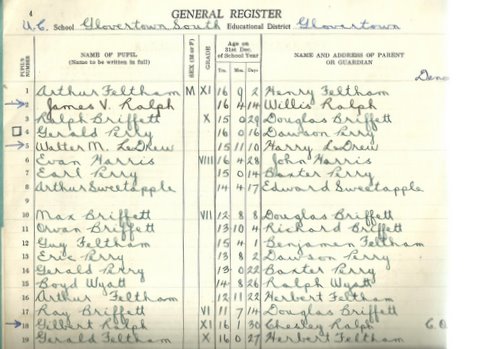 4
GENERAL REGISTER
U.C. School Glovertown South Educational District Glovertown
PUPIL'S NUMBER NAME OF PUPIL (Name to be written in full) SEX (M or F) GRADE Age on 31st Dec. of School Year Yrs. Mos. Days NAME AND ADDRESS OF PARENT OR GUARDIAN
Deno
1 Arthur Feltham M XI 16 9 2 Henry Feltham
2 James V. Ralph 16 4 14 Willis Ralph
3 Ralph Briffett X 15 0 29 Douglas Briffett
4 Gerald Perry 16 0 16 Dawson Perry
5 Walter M. LeDrew 15 11 10 Harry LeDrew
6 Evan Harris VIII 16 4 28 John Harris
7 Earl Perry 15 0 14 Baxter Perry
8 Arthur Sweetapple 14 4 17 Edward Sweetapple
9
10 Max Briffett VII 12 8 8 Douglas Briffett
11 Orvan Briffett 13 10 4 Richard Briffett
12 Guy Feltham 15 4 1 Benjamen Feltham
13 Eric Perry 13 8 2 Dawson Perry
14 Gerald Perry 13 0 22 Baxter Perry
15 Boyd Wyatt 14 8 26 Ralph Wyatt
16 Arthur Feltham 12 11 22 Herbert Feltham
17 Ray Briffett VI 11 7 14 Douglas Briffett
18 Gilbert Ralph XI 16 1 30 Chesley Ralph
19 Gerald Feltham X 16 0 27 Herbert Feltham